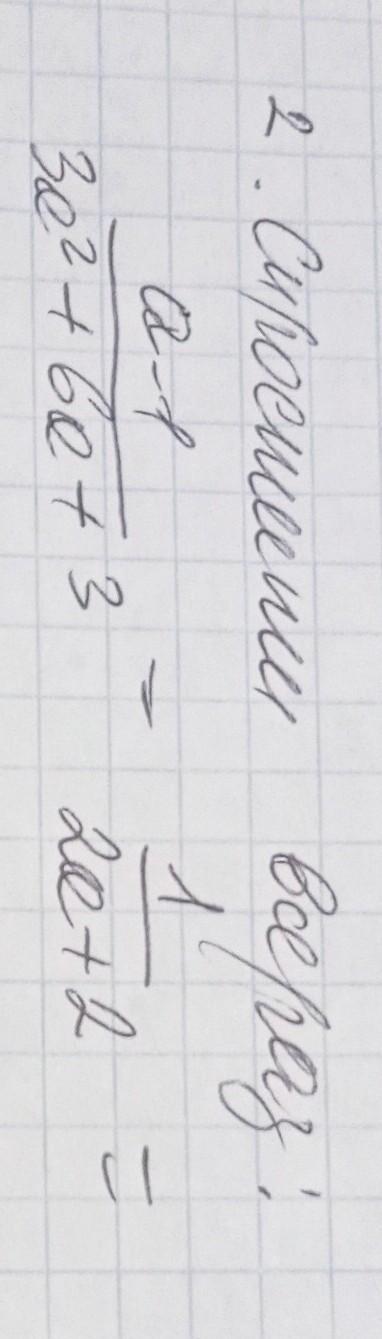 2. Спростити вераз:
\frac{a-1}{3a²+6a+3} - \frac{1}{2a+2} =